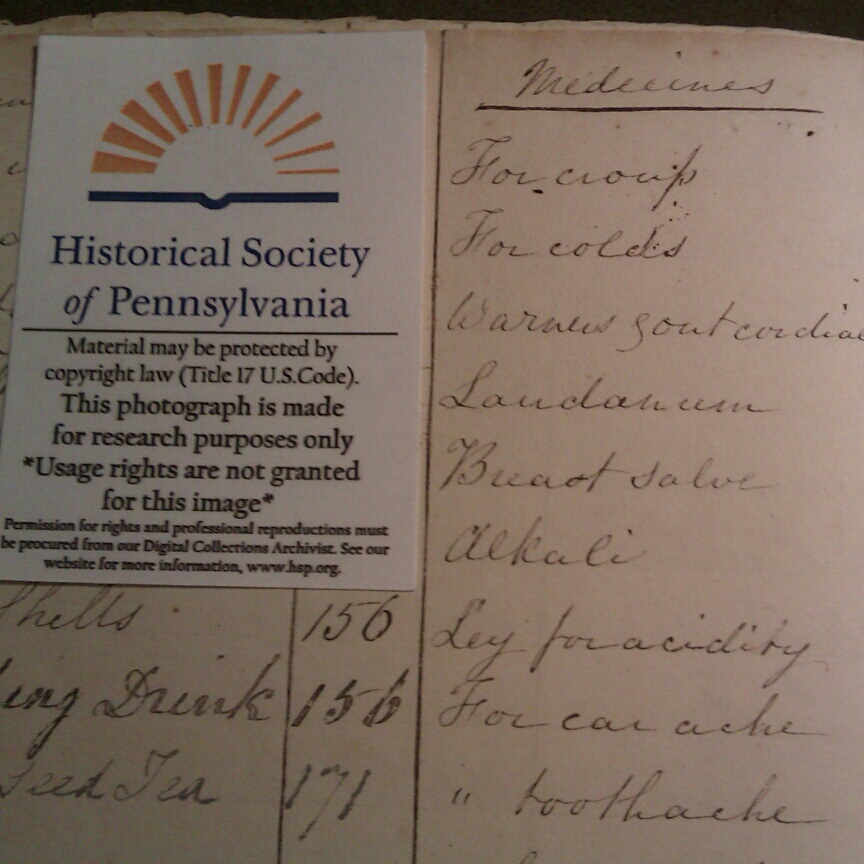 Historical Society
of Pennsylvania
Material may be protected by
copyright law (Title 17 U.S.Code).
This photograph is made
for research purposes only
*Usage rights are not granted
for this image*
Permission for rights and professional reproductions must
be procured from our Digital Collections Archivist. See our
website for more information, www.hsp.org.
Shells 156
Drink 156
seed Tea 171
Medecines
For croup
For colds
Warners gout cordial
Laudanum
Breast salve
Alkali
Ley for acidity
For ear ache
" toothache